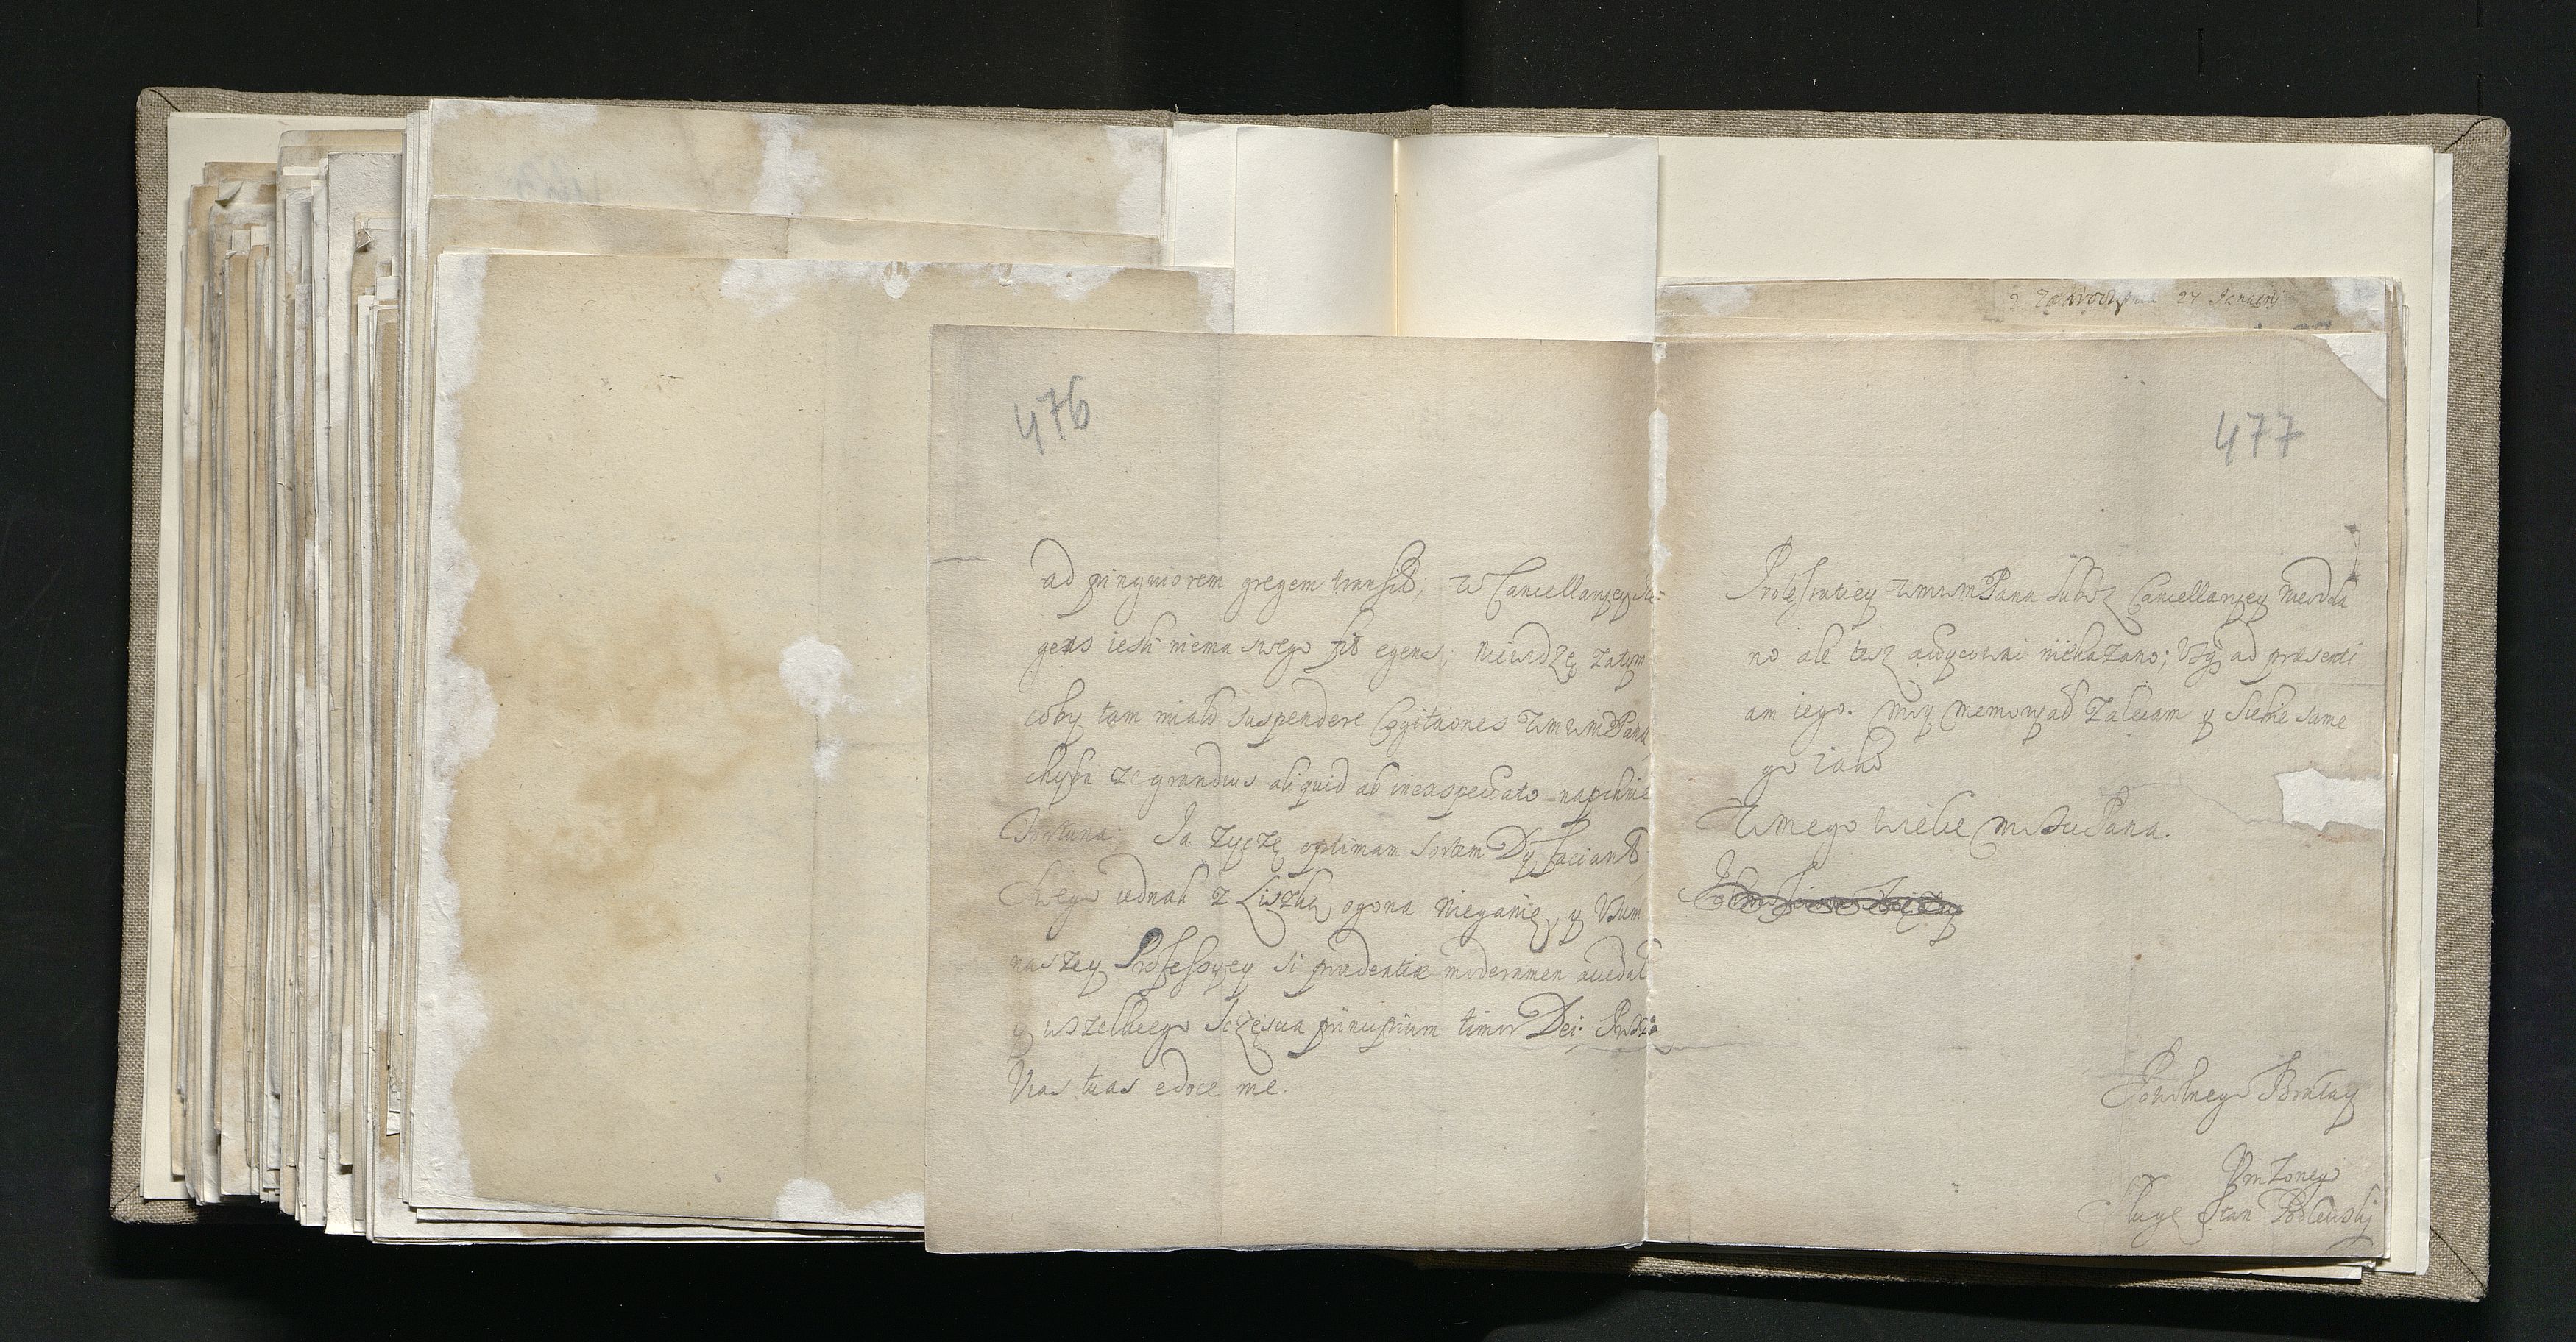 476
ad pinguiorem gregem transit, w Cancellaryey
gens iesli niema swego fit egens, Niewidzę zatym
coby tam miało suspendere Cogitationes WmwmPana
chyba ze grandius aliquid ab inexspectato napchnie
Fortuna. Ja zyczę optimam sortem Dy faciant,
swego iednak z Liszką ogona nieganię, y Vsum
naszey Professyey si prudentiæ moderamen accedat
y wszelkiego Sczęscia principium timor Dei.
Vias tuas edoce me.
27 Januarij
477
Protestatiey WmwmPana lubo z Cancellaryey niewida
no ale tesz niekazano; ad præsenti
am iego. Moy Zalecam y Siebie same
go iako
Wmego wielce Pana.
Powolnego Bratay
Vnizonego
sługę Stan